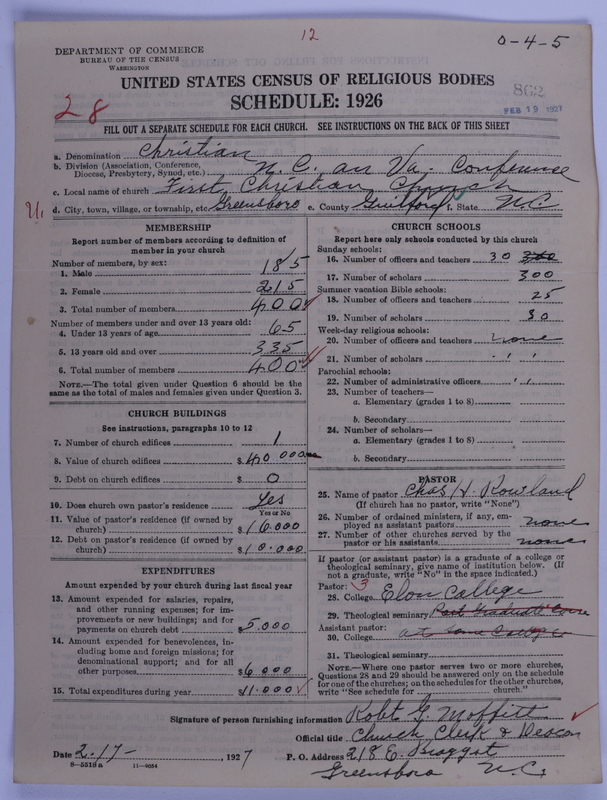 12
0-4-5
DEPARTMENT OF COMMERCE
BUREAU OF THE CENSUS
WASHINGTON
UNITED STATES CENSUS OF RELIGIOUS BODIES
SCHEDULE: 1926
28
862
FEB 19 1927
FILL OUT A SEPARATE SCHEDULE FOR EACH CHURCH. SEE INSTRUCTIONS ON THE BACK OF THIS SHEET
a. Denomination Christian
b. Division (Association, Conference, Diocese, Presbytery, Synod, etc.) N.C. an Va. Conference
c. Local name of church First Christian Church
d. City, town, village, or township, etc. Greensboro e. County Guilford f. State N.C.
MEMBERSHIP
Report number of members according to definition of
member in your church
Number of members, by sex:
1. Male 185
2. Female 215
3. Total number of members 400
Number of members under and over 13 years old:
4. Under 13 years of age 65
5. 13 years old and over 335
6. Total number of members 400
NOTE.—The total given under Question 6 should be
same as the total of males and females given under Question 3.
CHURCH BUILDINGS
See instructions, paragraphs 10 to 12
7. Number of church edifices 1
8. Value of church edifices $40 000
9. Debt on church edifices $ 0
10. Does church own pastor's residence Yes
Yes or No
11. Value of pastor's residence (if owned by
church) $16.000
12. Debt on pastor's residence (if owned by
church) $10.000
EXPENDITURES
Amount expended by your church during last fiscal year
13. Amount expended for salaries, repairs,
and other running expenses; for im-
provements or new buildings; and for
payments on church debt $5.000
14. Amount expended for benevolences, in-
cluding home and foreign missions; for
denominational support; and for all
other purposes $6 000
15. Total expenditures during year $11.000
CHURCH SCHOOLS
Report here only schools conducted by this church
Sunday schools:
16. Number of officers and teachers 30
17. Number of scholars 300
Summer vacation Bible schools:
18. Number of officers and teachers 25
19. Number of scholars 80
Week-day religious schools:
20. Number of officers and teachers none
21. Number of scholars " "
Parochial schools:
22. Number of administrative officers " "
23. Number of teachers—
a. Elementary (grades 1 to 8)
b. Secondary
24. Number of scholars—
a. Elementary (grades 1 to 8)
b. Secondary
PASTOR
25. Name of pastor Chas H. Rowland
(If church has no pastor, write "None")
26. Number of ordained ministers, if any, em-
ployed as assistant pastors none
27. Number of other churches served by the
pastor or his assistants none
If pastor (or assistant pastor) is a graduate of a college or
theological seminary, give name of institution below. (If
not a graduate, write "No" in the space indicated.)
Pastor: 3
28. College Elon College
29. Theological seminary Post Graduate Course
Assistant pastor:
30. College at same College
31. Theological seminary
NOTE.—Where one pastor serves two or more churches,
Questions 28 and 29 should be answered only on the schedule
for one of the churches; on the schedules for the other churches,
write "See schedule for church."
Signature of person furnishing information Robt G. Moffitt
Official title Church Clerk & Deacon
Date 2-17-, 1927 P. O. Address 218 E. Bragg St
8—5519 a 11—9054
Greensboro N.C.